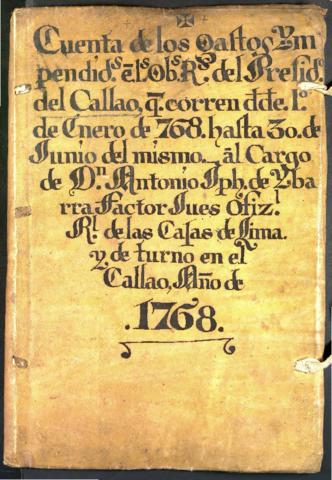 Cuenta de los Gastos Ym
pendidˢ. ēlˢ. Obˢ. Rˢ. del Presidº.
del Callao, q̄. corren dd̄e. 1º.
de Enero de 768. hasta 30. de
Junio del mismo_ āl Cargo
de Dⁿ. Antonio Jph. de Yba
rra Factor Jues Ofizˡ.
Rˡ. de las Casas de Lima.
y. de turno en el
Callao, Año de
.1768.